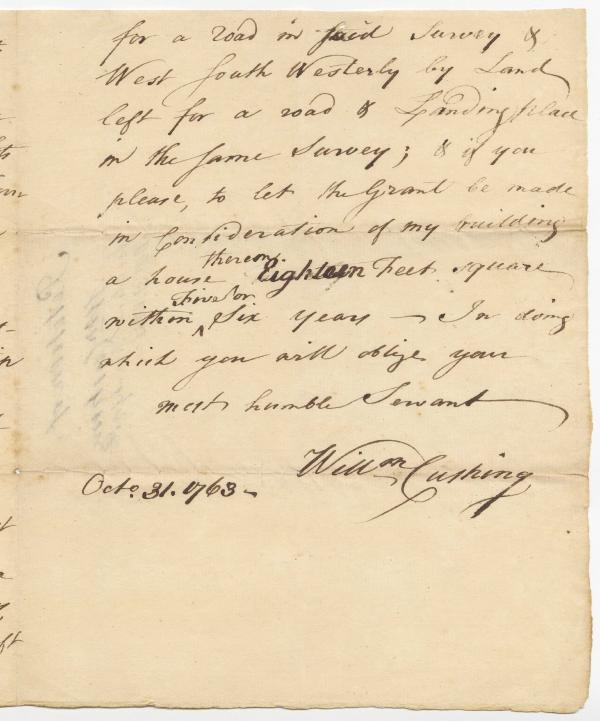 for a road in said Survey &
West South Westerly by Land
left for a road & Landing place
in the same Survey; & if you
please, to let the Grant be made
in Consideration of my building
a house thereon Eighteen Feet square
within Five or Six years — In doing
which you will oblige your
most humble Servant
Willm Cushing
Octo. 31. 1763 —